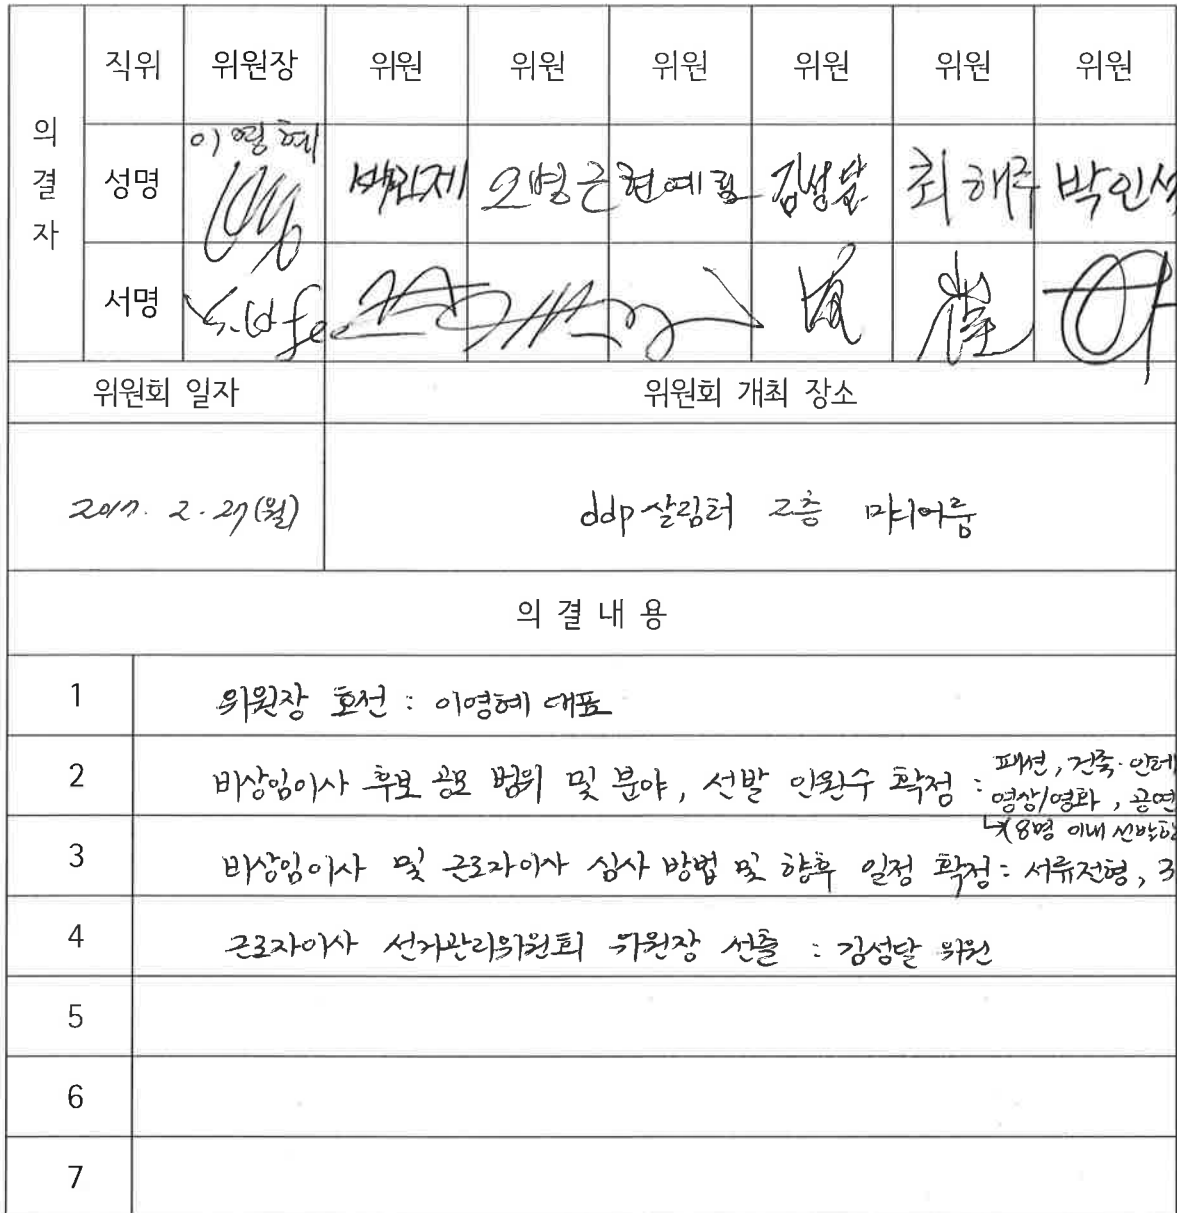 의결자
직위 위원장 위원 위원 위원 위원 위원 위원
성명 이영혜 백민제 오병근 현예림 김성달 최해주 박인석
서명
위원회 일자 위원회 개최 장소
2017. 2. 27(월) ddp 살림터 2층 미디어룸
의결내용
1 위원장 호선 : 이영혜 대표
2 비상임이사 후보 공모 범위 및 분야, 선발 인원수 확정 : 패션, 건축·인테
영상/영화, 공연
(8명 이내 선발
3 비상임이사 및 근로자이사 심사 방법 및 향후 일정 확정 : 서류전형, 3
4 근로자이사 선거관리위원회 위원장 선출 : 김성달 위원
5
6
7